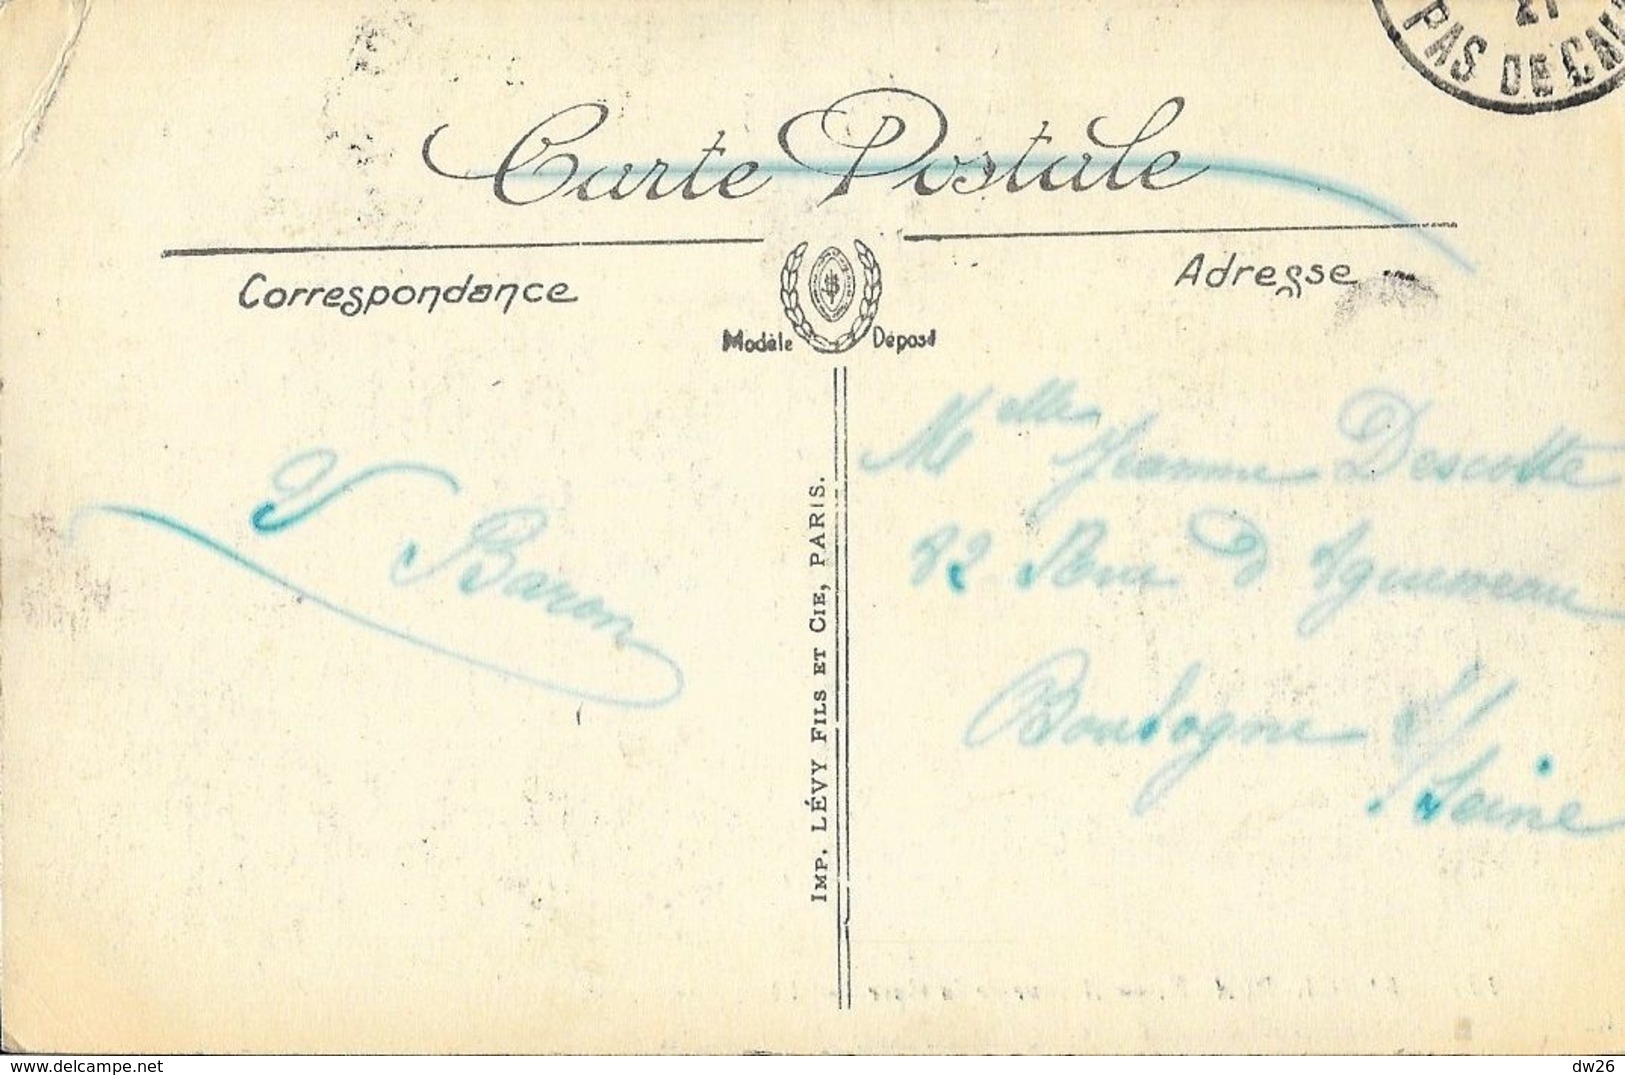 21
PAS DE CAL
Carte Postale
Correspondance
Adresse
Modèle Déposé
Y Baron
Mlle Jeanne Descotte
82 Rue d'Aguesseau
Boulogne s/Seine
IMP. LÉVY FILS ET CIE, PARIS.
www.delcampe.net
dw26